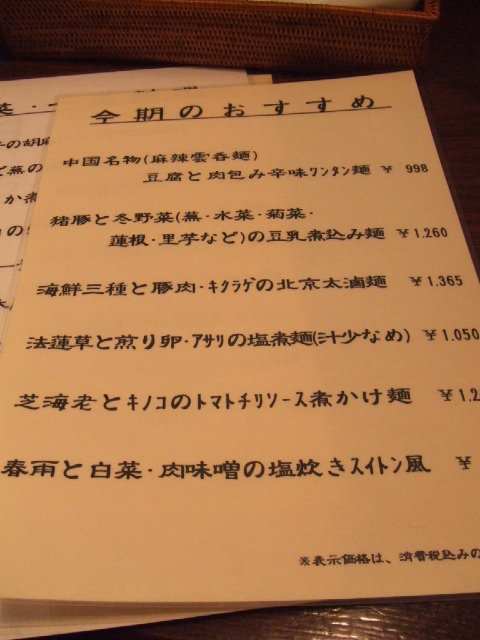 今期のおすすめ
中国名物(麻辣雲呑麺)
豆腐と肉包み辛味ワンタン麺 ¥ 998
猪豚と冬野菜(蕪・水菜・菊菜・
蓮根・里芋など)の豆乳煮込み麺 ¥1.260
海鮮三種と豚肉・キクラゲの北京太滷麺 ¥1.365
法蓮草と煎り卵・アサリの塩煮麺(汁少なめ) ¥1.050
芝海老とキノコのトマトチリソース煮かけ麺 ¥1.2
春雨と白菜・肉味噌の塩炊きスイトン風 ¥
※表示価格は、消費税込みの